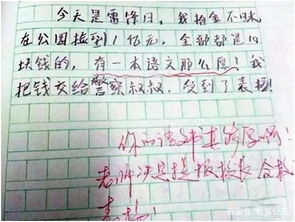 今天是雷锋日，我拾金不昧
在公园捡到1亿元，全部都是10
块钱的，有一本语文那么厚！我
把钱交给警察叔叔，受到了表扬！
你的语文书真厚啊！
老师决定提报校长 全校
表扬！